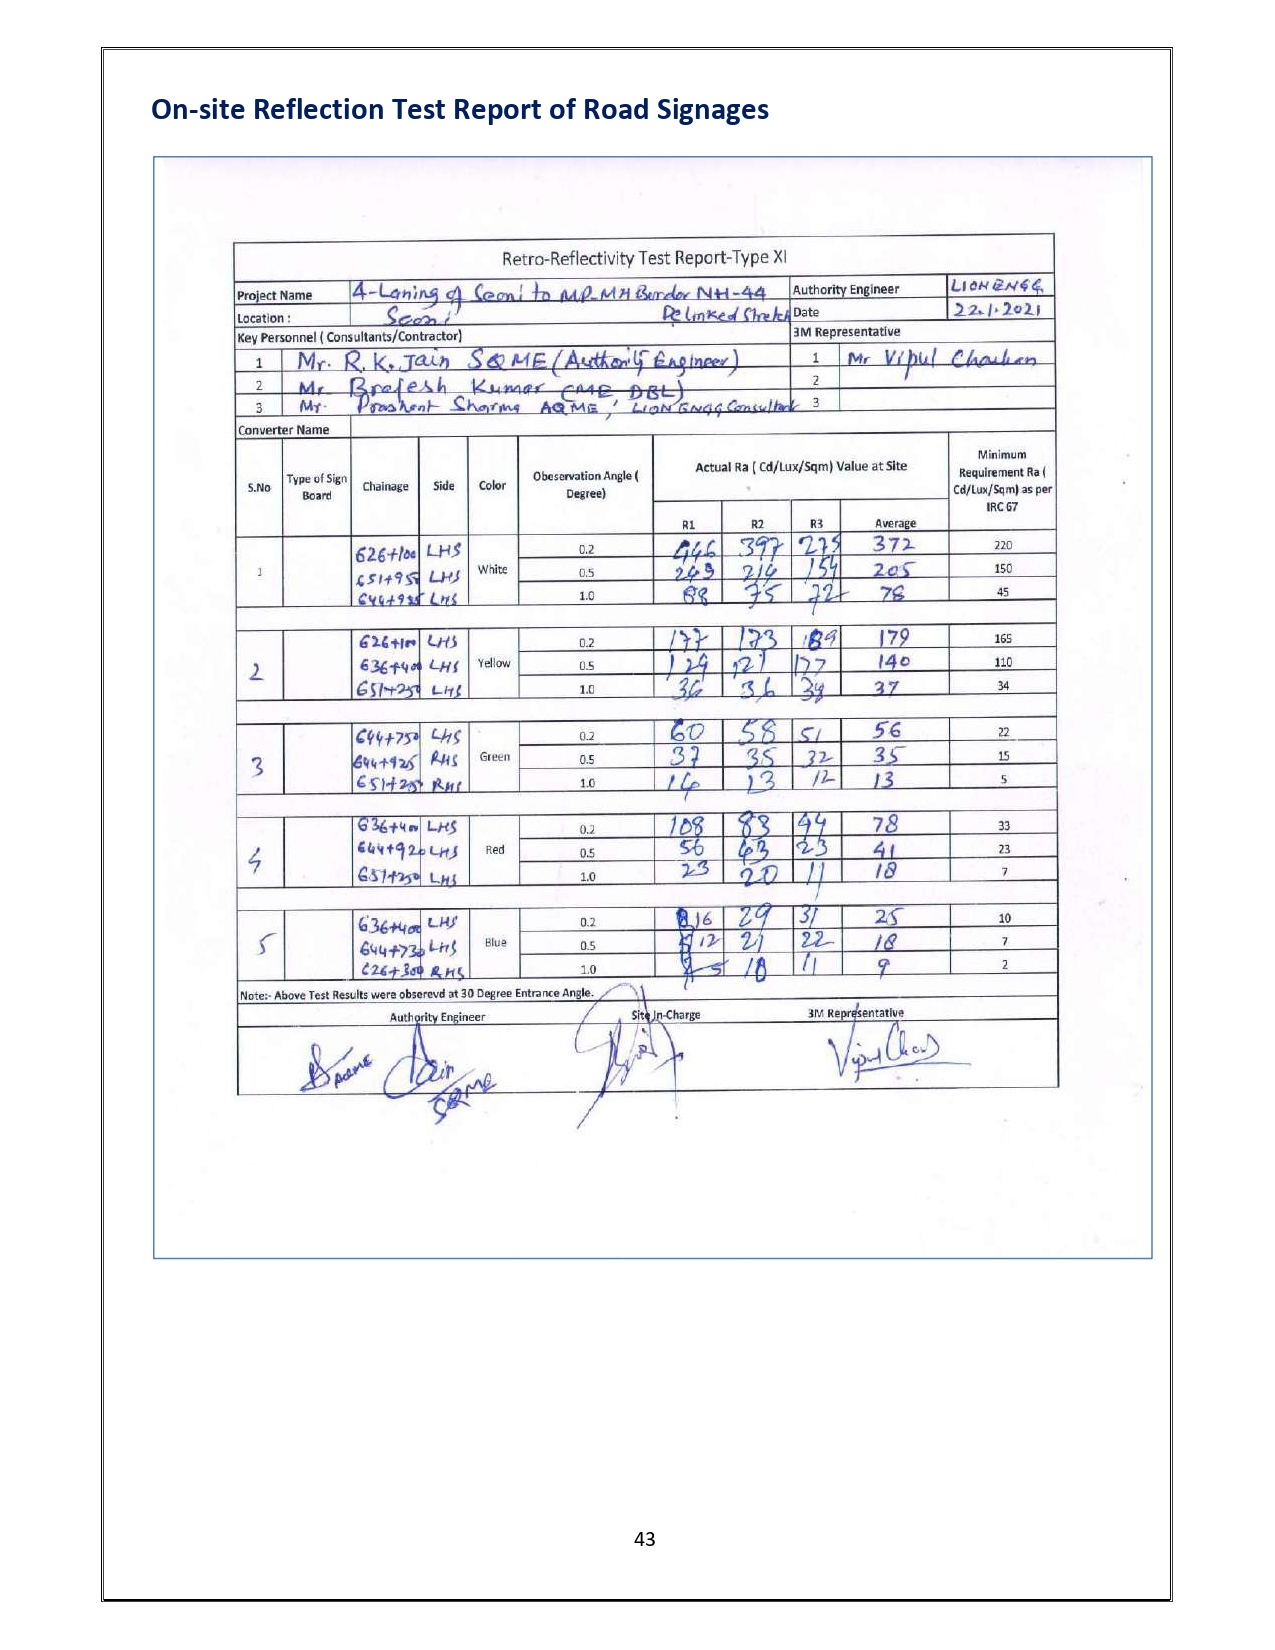 On-site Reflection Test Report of Road Signages
Retro-Reflectivity Test Report-Type XI
Project Name 4-Laning of Seoni to MP-MH Border NH-44 Authority Engineer LION ENGG
Location : Seoni Delinked Stretch Date 22.1.2021
Key Personnel ( Consultants/Contractor) 3M Representative
1 Mr. R.K. Jain SQME (Authority Engineer) 1 Mr Vipul Chauhan
2 Mr. Brajesh Kumar (ME DBL) 2
3 Mr. Prashant Sharma AQME, LION ENGG Consultant 3
Converter Name
S.No Type of Sign Board Chainage Side Color Obeservation Angle ( Degree) Actual Ra ( Cd/Lux/Sqm) Value at Site Minimum Requirement Ra ( Cd/Lux/Sqm) as per IRC 67
R1 R2 R3 Average
626+100 LHS 0.2 446 397 275 372 220
1 651+950 LHS White 0.5 249 214 154 205 150
644+925 LHS 1.0 88 75 72 78 45
626+100 LHS 0.2 177 173 189 179 165
2 636+400 LHS Yellow 0.5 129 121 177 140 110
651+250 LHS 1.0 36 36 39 37 34
644+750 LHS 0.2 60 58 51 56 22
3 644+925 RHS Green 0.5 37 35 32 35 15
651+250 RHS 1.0 14 13 12 13 5
636+400 LHS 0.2 108 83 44 78 33
4 644+920 LHS Red 0.5 56 43 23 41 23
651+250 LHS 1.0 23 20 11 18 7
636+400 LHS 0.2 16 29 31 25 10
5 644+730 LHS Blue 0.5 12 21 22 18 7
626+300 RHS 1.0 5 10 11 9 2
Note:- Above Test Results were obserevd at 30 Degree Entrance Angle.
Authority Engineer Site In-Charge 3M Representative
Jain Vipul Chau
SQME
43